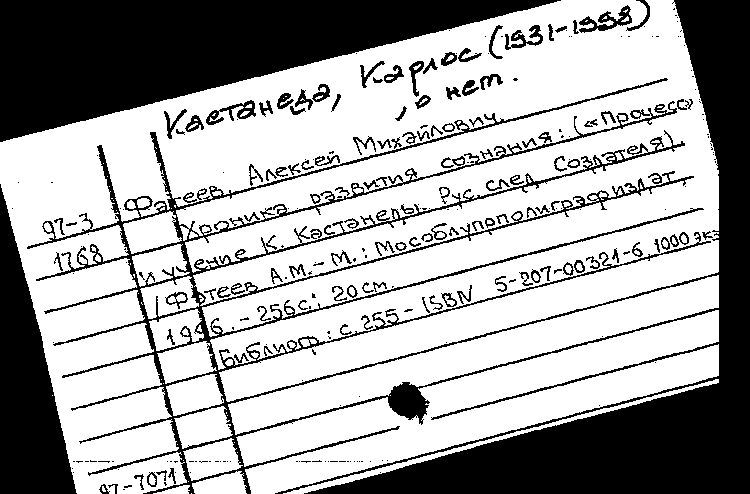 Кастанеда, Карлос (1931-1998)
, о нем.
Фатеев, Алексей Михайлович.
97-3 Хроника развития сознания: («Процесс»
1768 и учение К. Кастанеды. Рус. след Создателя).
/ Фатеев А.М. - М.: Мособлупрполиграфиздат,
1996. - 256с.; 20см.
Библиогр.: с. 255 - ISBN 5-207-00321-6, 1000 экз
97-7071